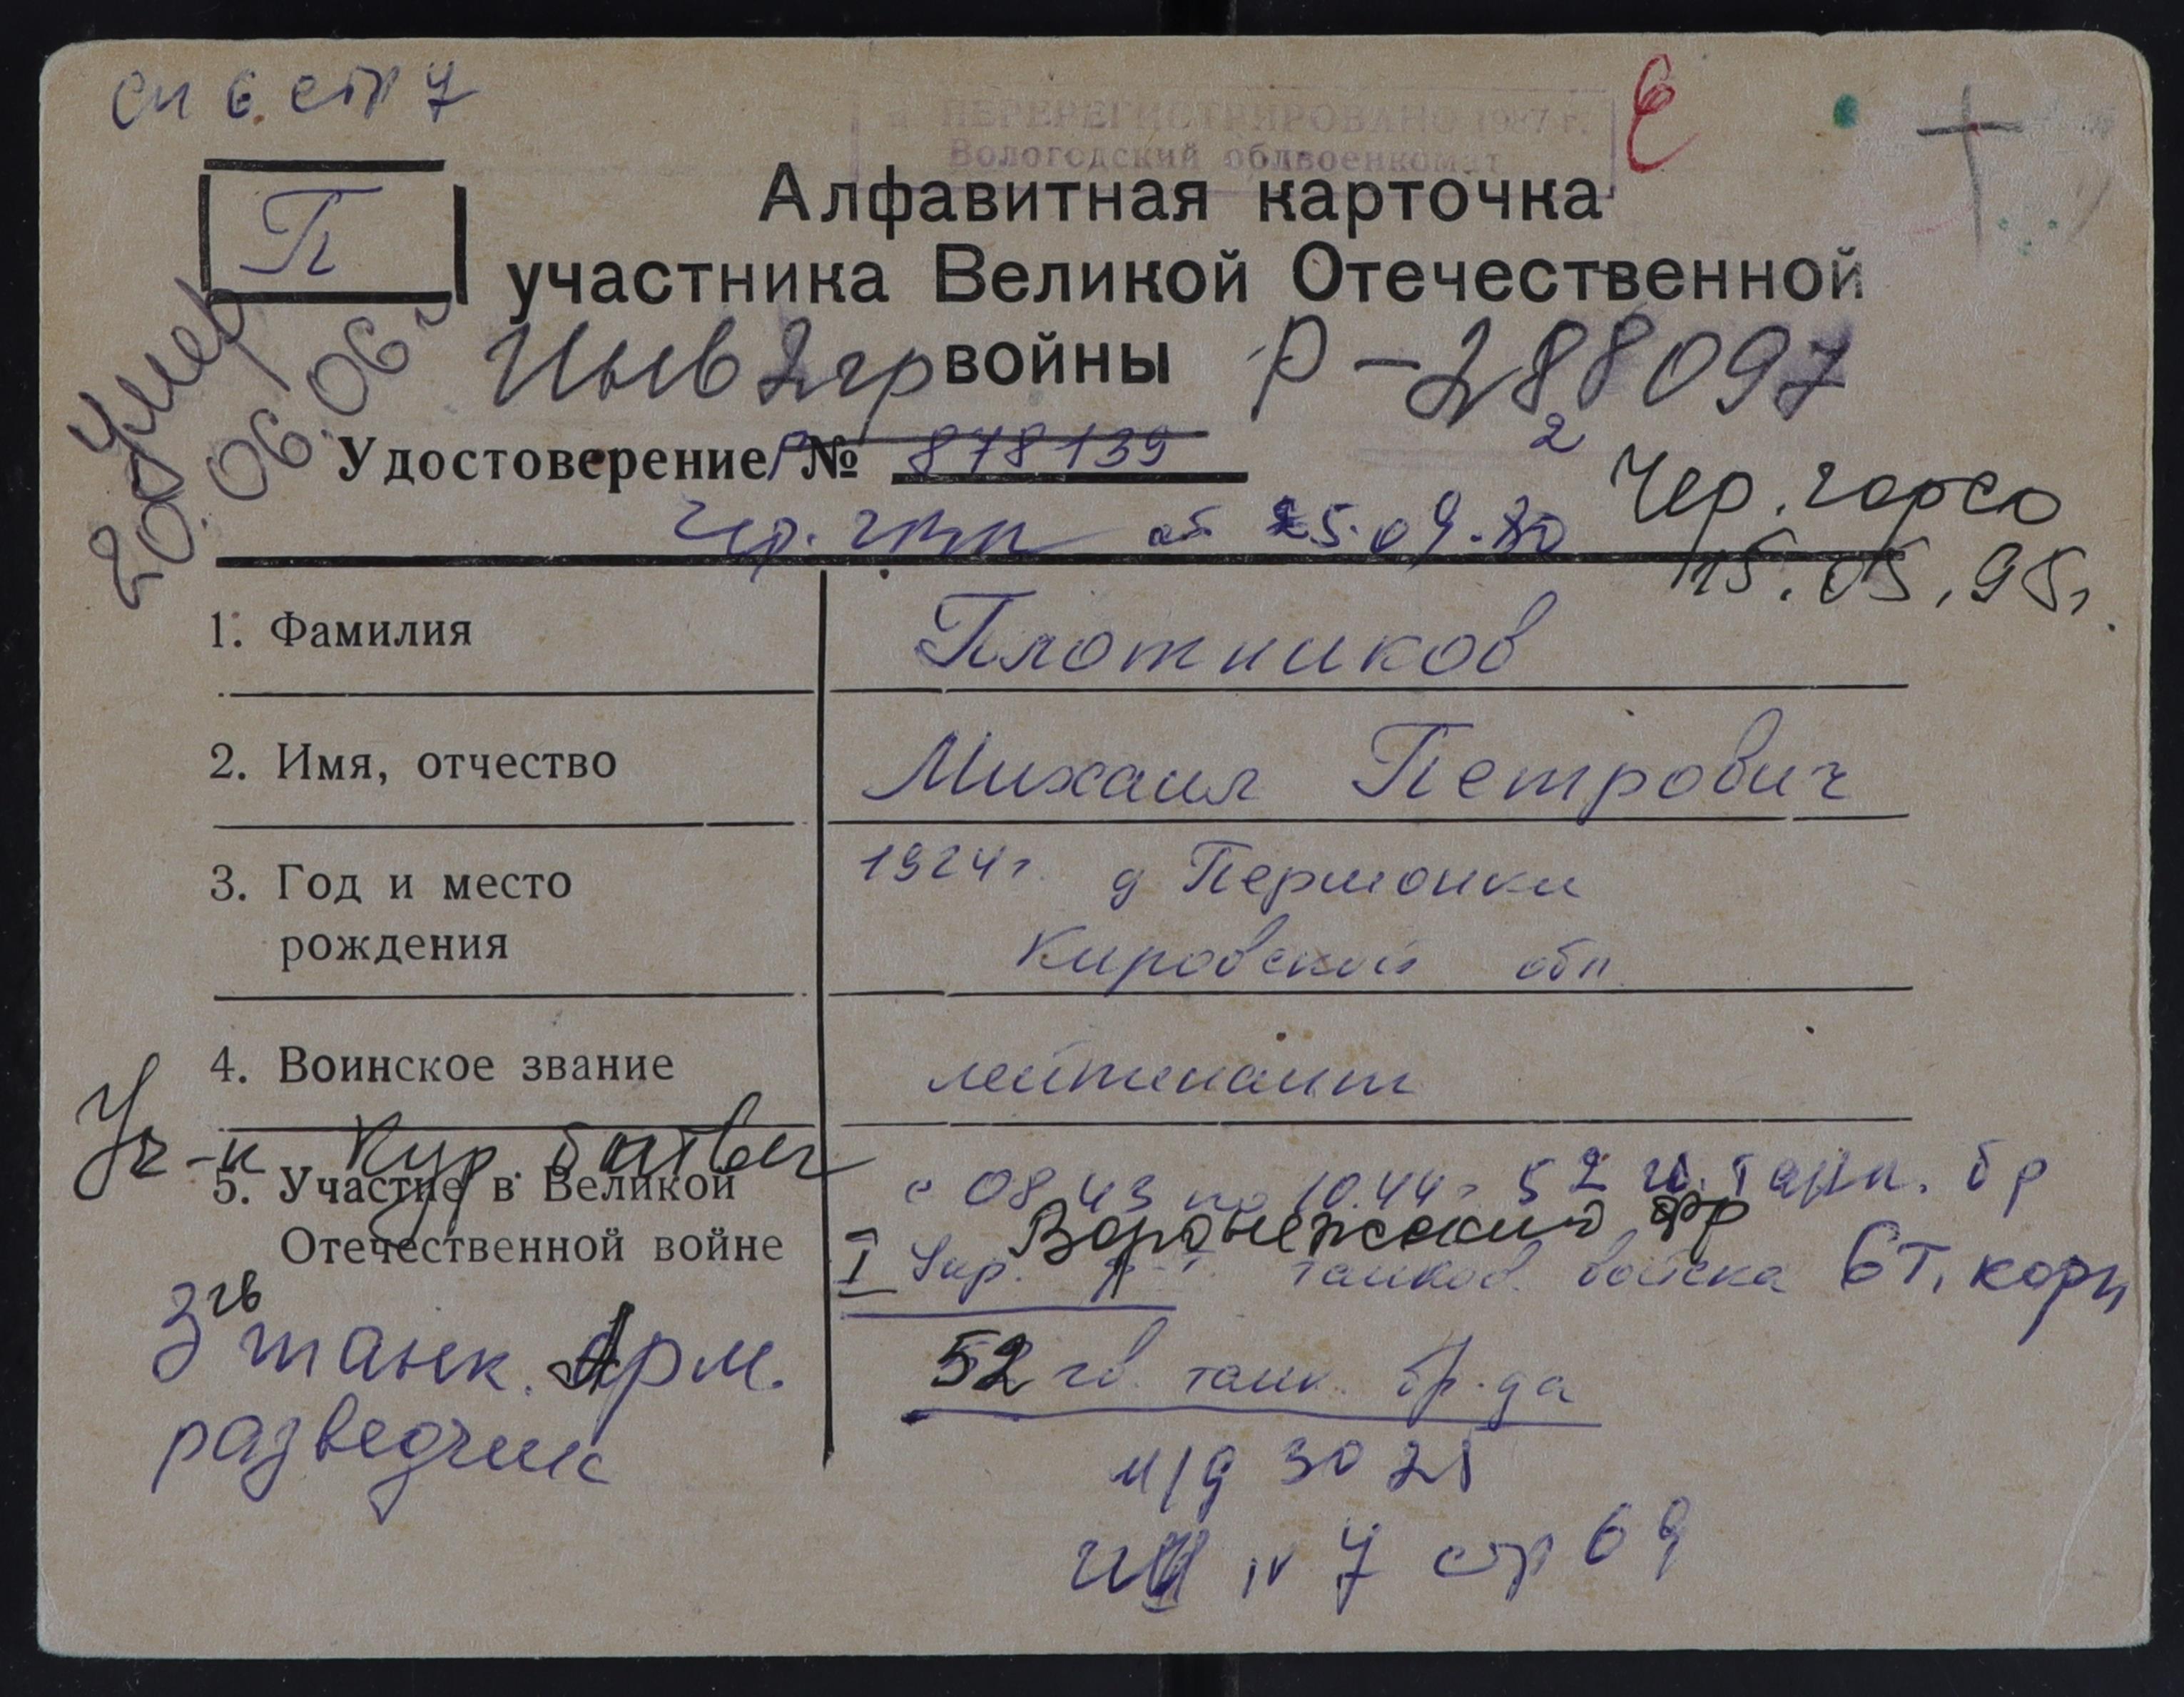 сп 6. стр 7
ПЕРЕРЕГИСТРИРОВАНО 1987 г.
Вологодский облвоенкомат
П
Алфавитная карточка
участника Великой Отечественной
войны
Инв 2гр Р-288097
Умер
20.06.06г
Удостоверение Р № 878139
Чер. от 25.09.80
Чер. горсо
15.05.95г.
1. Фамилия Плотников
2. Имя, отчество Михаил Петрович
3. Год и место 1924г. д
рождения Кировской обл
4. Воинское звание лейтенант
Уч-к Кур. битвы
5. Участие в Великой с 08.43 по 10.44г 52 танк. бр
Воронежский фр
Отечественной войне I Укр. танков. войска 6т. корп
3 гв танк. Арм. 52 гв. танк. бр-да
разведчик
и/д
№ 7 стр 69